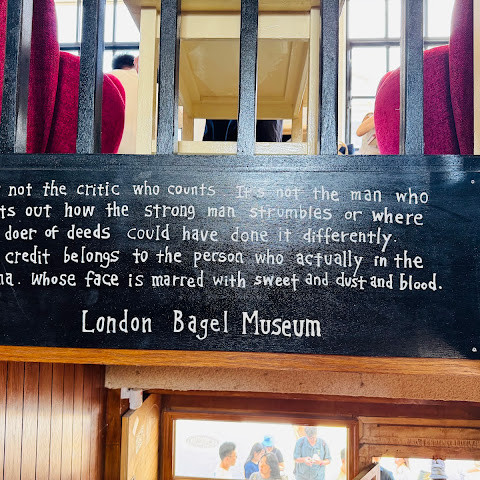 not the critic who counts. It's not the man who
ts out how the strong man strumbles or where
doer of deeds could have done it differently.
credit belongs to the person who actually in the
na. Whose face is marred with sweet and dust and blood.
London Bagel Museum